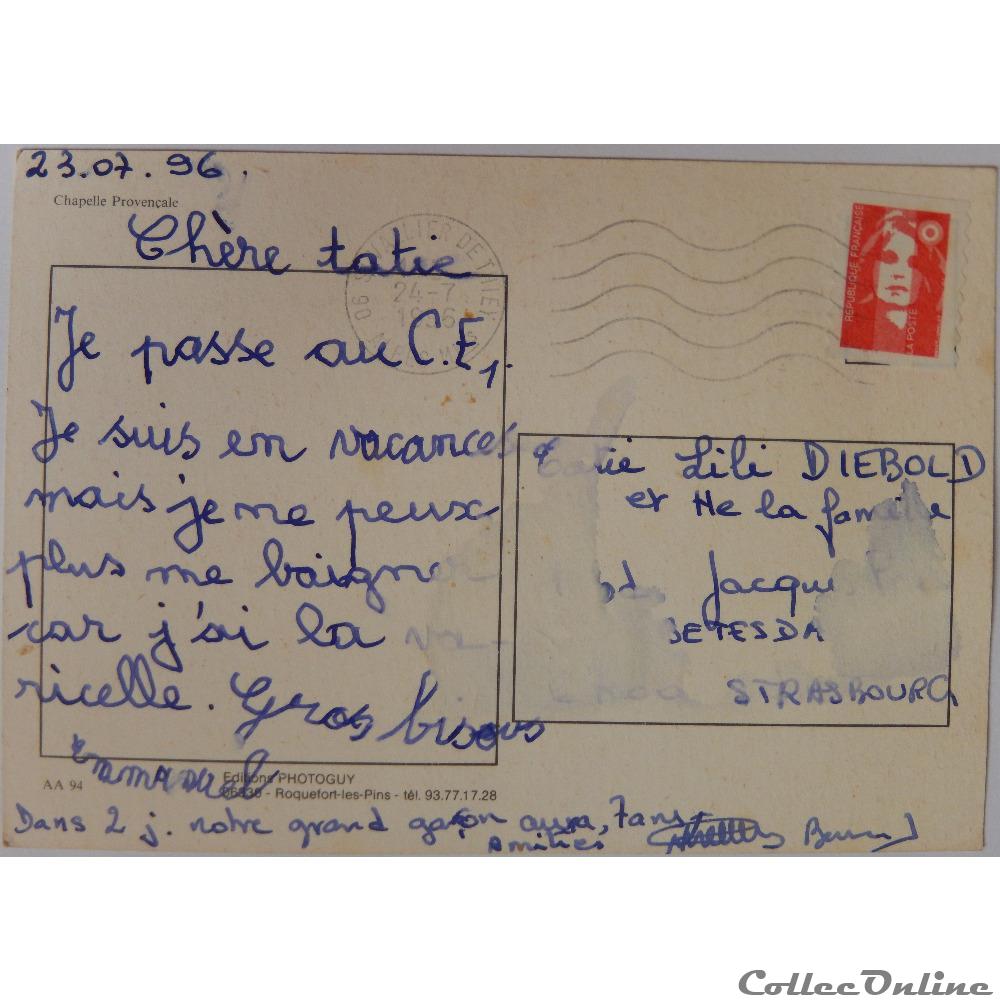 23.07.96.
Chapelle Provençale
Chère tatie
Je passe au C.E1.
Je suis en vacances
mais je ne peux
plus me baigne
car j'ai la
ricelle. Gros bisous
Emmanuel
AA 94
Editions PHOTOGUY
06330 - Roquefort-les-Pins - tél. 93.77.17.28
Dans 2 j. notre grand garçon aura 7 ans
Amitiés
24-7
1996
RÉPUBLIQUE FRANÇAISE
LA POSTE
Lili DIEBOLD
et la famille
Jacqu
BETESDA
STRASBOURG
CollecOnline